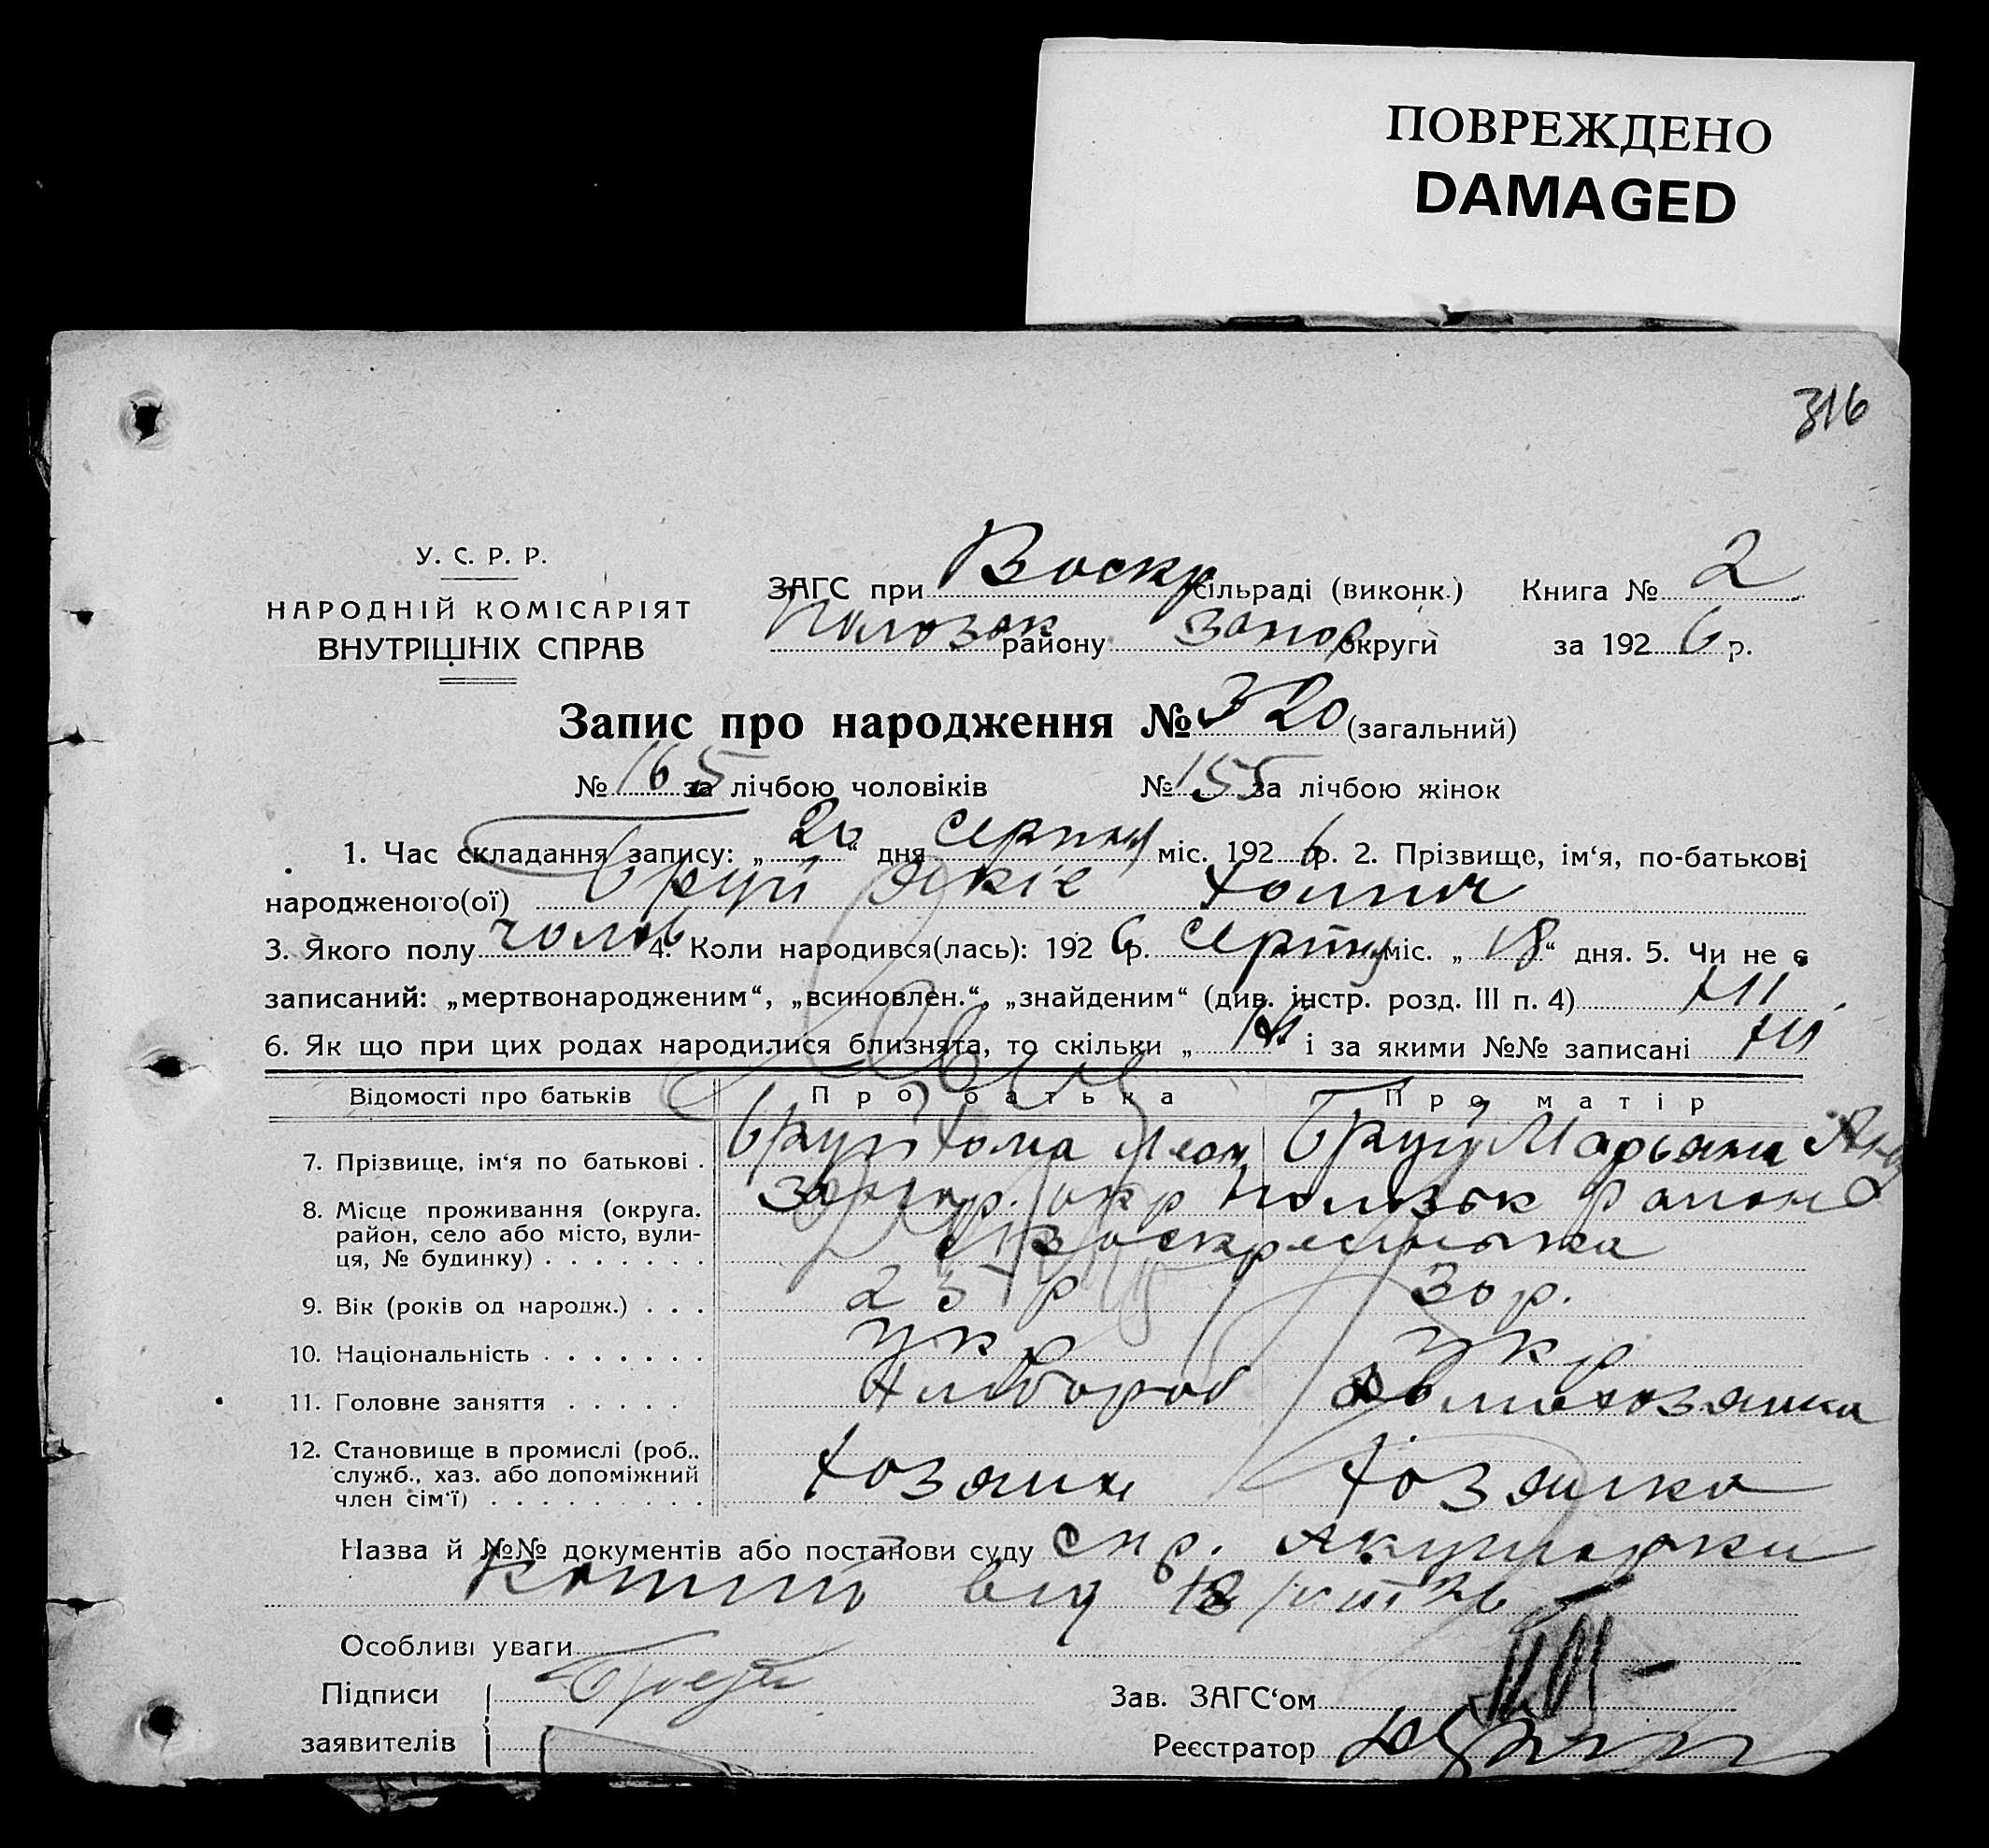 ПОВРЕЖДЕНО
DAMAGED
316
У. С. Р. Р.
НАРОДНІЙ КОМІСАРІЯТ
ВНУТРІШНІХ СПРАВ
ЗАГС при Воскр сільраді (виконк.) Книга № 2
району Запор округи за 1926 р.
Запис про народження № 320 (загальний)
№ 165 за лічбою чоловіків № 155 за лічбою жінок
1. Час складання запису: „20“ дня серпня міс. 1926 р. 2. Прізвище, ім‘я, по-батькові
народженого(ої) Бруй Хомич
3. Якого полу чолов 4. Коли народився(лась): 1926 р. серпня міс. „18“ дня. 5. Чи не є
записаний: „мертвонародженим“, „всиновлен.“, „знайденим“ (див. інстр. розд. III п. 4) ні
6. Як що при цих родах народилися близнята, то скільки „ні“ і за якими №№ записані ні
Відомості про батьків Про батька Про матір
7. Прізвище, ім‘я по батькові . Бруй Хома Леон Бруй Марьяна
8. Місце проживання (округа, Запор. окр район
район, село або місто, вули- с Воскресенька
ця, № будинку) . . . . . . .
9. Вік (років од народж.) . . . 25 р 30 р.
10. Національність . . . . . . . укр укр
11. Головне заняття . . . . . Хлібороб домохозяйка
12. Становище в промислі (роб.,
служб., хаз. або допоміжний Хозяин Хозяйка
член сім‘ї) . . . . . . . . .
Назва й №№ документів або постанови суду спр. акушорки
від 18/VIII 26
Особливі уваги
Підписи Зав. ЗАГС‘ом
заявителів Реєстратор